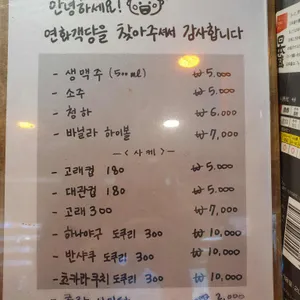 안녕하세요!
연화객당을 찾아주셔서 감사합니다
- 생맥주 (500ml) ₩ 5,000
- 소주 ₩ 5,000
- 청하 ₩ 6,000
- 바닐라 하이볼 ₩ 7,000
- < 사케 > -
- 고래컵 180 ₩ 5,000
- 대관컵 180 ₩ 5,000
- 고래 300 ₩ 7,000
- 하나야구 도쿠리 300 ₩ 10,000
- 반샤쿠 도쿠리 300 ₩ 10,000
- 쵸카라쿠치 도쿠리 300 ₩ 10,000